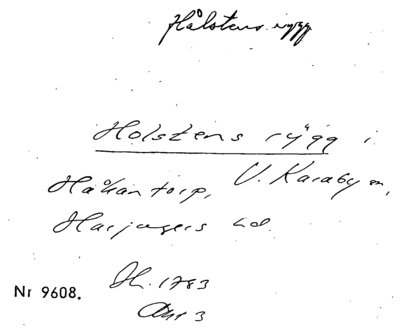 Hålstens rygg
Holstens rygg i
Håkantorp, V. Karaby sn,
Harjagers hd.
Nr 9608. Lh. 1783
Akt 3